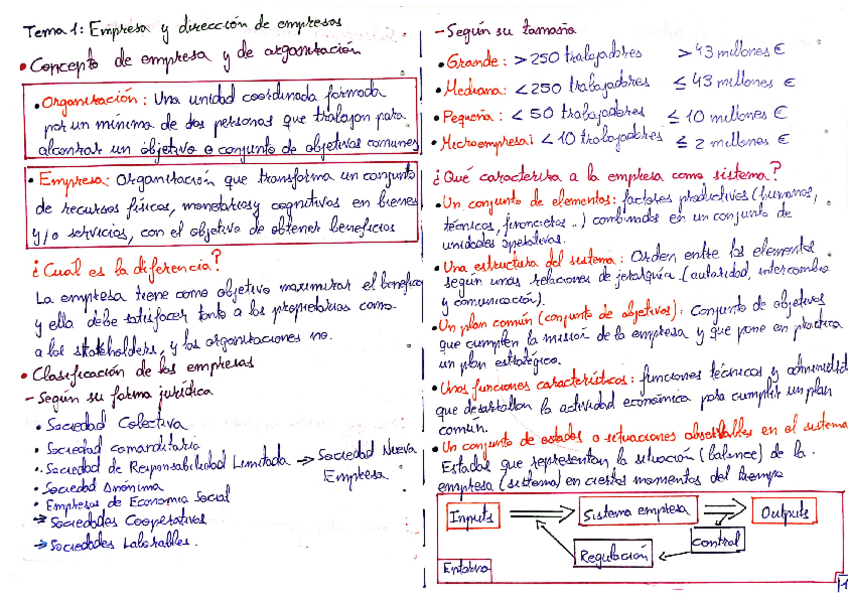 Tema 1: Empresa y dirección de empresas
• Concepto de empresa y de organización
• Organización: Una unidad coordinada formada
por un mínimo de dos personas que trabajan para
alcanzar un objetivo o conjunto de objetivos comunes
• Empresa: Organización que transforma un conjunto
de recursos físicos, monetarios y cognitivos en bienes
y/o servicios, con el objetivo de obtener beneficios
¿Cuál es la diferencia?
La empresa tiene como objetivo maximizar el beneficio
y ella debe satisfacer tanto a los propietarios como
a los stakeholders, y las organizaciones no.
• Clasificación de las empresas
- Según su forma jurídica
• Sociedad Colectiva
• Sociedad comanditaria
• Sociedad de Responsabilidad Limitada → Sociedad Nueva
Empresa
• Sociedad Anónima
• Empresas de Economía Social
→ Sociedades Cooperativas
→ Sociedades Laborables.
- Según su tamaño
• Grande: > 250 trabajadores > 43 millones €
• Mediana: < 250 trabajadores ≤ 43 millones €
• Pequeña: < 50 trabajadores ≤ 10 millones €
• Microempresa: < 10 trabajadores ≤ 2 millones €
¿Qué caracteriza a la empresa como sistema?
• Un conjunto de elementos: factores productivos (humanos,
técnicos, financieros...) combinados en un conjunto de
unidades operativas.
• Una estructura del sistema: Orden entre los elementos
según unas relaciones de jerarquía (autoridad, intercambio
y comunicación).
• Un plan común (conjunto de objetivos): Conjunto de objetivos
que cumplen la misión de la empresa y que pone en práctica
un plan estratégico.
• Unas funciones características: funciones técnicas y administ
que desarrollan la actividad económica para cumplir un plan
común.
• Un conjunto de estados o situaciones observables en el sistema
Estados que representan la situación (balance) de la
empresa (sistema) en ciertos momentos del tiempo
Inputs ⇒ Sistema empresa ⇒ Outputs
Control
Regulación
Entorno